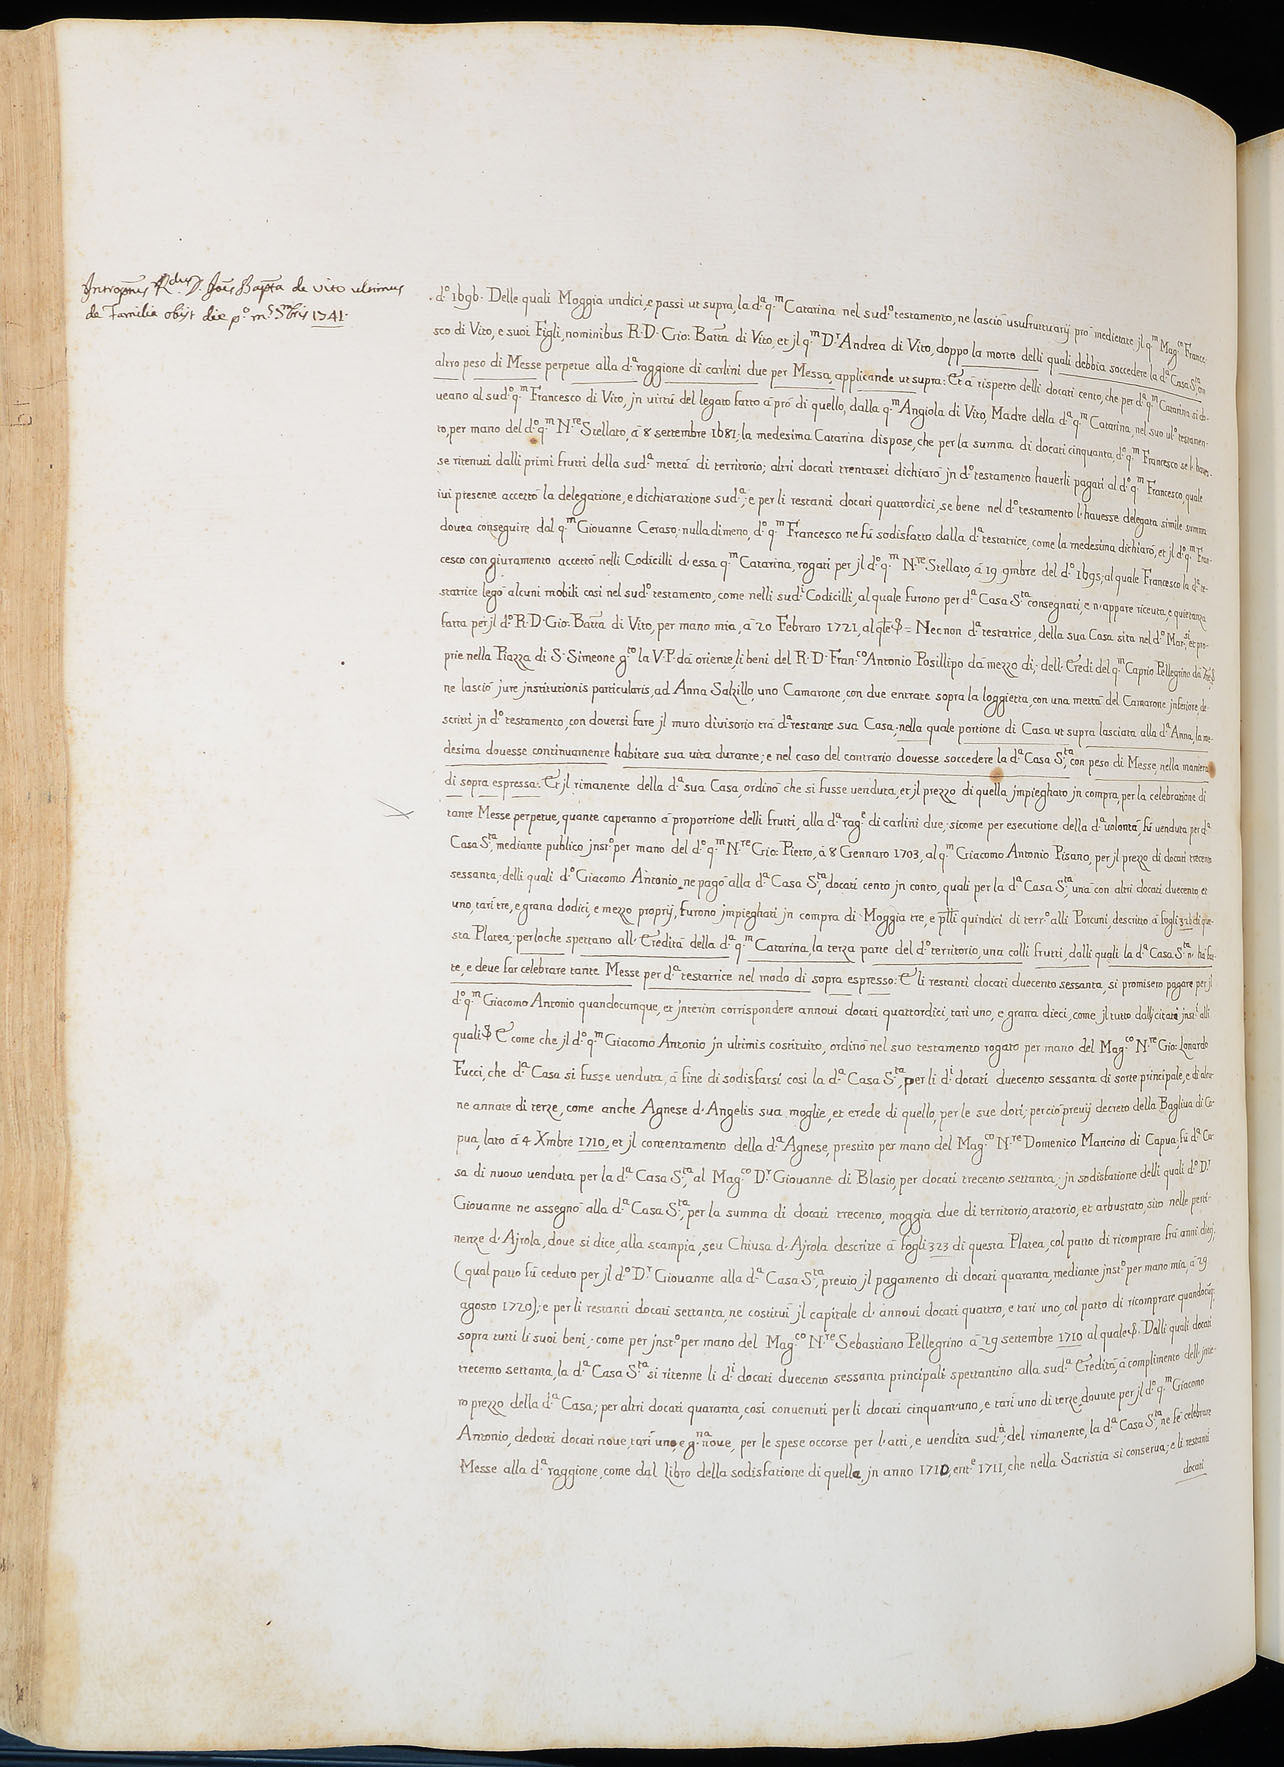 Introptus R.dus D. Joes Bapta de Vito ultimus
de Familia obijt die p.o m.s 9mbris 1741.
d.o 1696. Delle quali Moggia undici, e passi ut supra, la d.a q.m Catarina nel sud.o testamento, ne lasciò usufruttuarij pro medietate jl q.m Mag.co France-
sco di Vito, e suoi Figli, nominibus R. D. Gio: Batta di Vito, et jl q.m D.r Andrea di Vito, doppo la morte delli quali debbia soccedere la d.a Casa S.ta, con
altro peso di Messe perpetue alla d.a raggione di carlini due per Messa, applicande ut supra: Et à rispetto delli docati cento, che per d.a q.m Catarina si do-
ueano al sud.o q.m Francesco di Vito, jn uirtù del legato fatto à prò di quello, dalla q.m Angiola di Vito, Madre della d.a q.m Catarina, nel suo ul.o testamen-
to, per mano del d.o q.m N.re Stellato, à 8 settembre 1681; la medesima Catarina dispose, che per la summa di docati cinquanta, d.o q.m Francesco se l' haues-
se ritenuti dalli primi frutti della sud.a mettà di territorio; altri docati trentasei dichiarò jn d.o testamento hauerli pagati al d.o q.m Francesco, quale
iui presente accettò la delegatione, e dichiaratione sud.a; e per li restanti docati quattordici, se bene nel d.o testamento l' hauesse delegata simile summa
douea conseguire dal q.m Giouanne Ceraso; nulladimeno, d.o q.m Francesco ne fù sodisfatto dalla d.a testatrice, come la medesima dichiarò, et jl d.o q.m Fran-
cesco con giuramento accettò nelli Codicilli d' essa q.m Catarina, rogati per jl d.o q.m N.re Stellato, à 19 9mbre del d.o 1695; al quale Francesco la d.a te-
statrice legò alcuni mobili casi nel sud.o testamento, come nelli sud.i Codicilli, al quale furono per d.a Casa S.ta consegnati, e n' appare riceuta, e quietanza
fatta per jl d.o R. D. Gio: Batta di Vito, per mano mia, à 20 Febraro 1721, al qle &. = Necnon d.a testatrice, della sua Casa sita nel d.o Mar.si, et pro-
prie nella Piazza di S. Simeone g.to la V. P. dà oriente, li beni del R. D. Fran.co Antonio Posillipo dà mezzo dì, dell' Eredi del q.m Caprio Pellegrino dà
ne lasciò jure jnstitutionis particularis, ad Anna Salzillo, uno Camarone, con due entrate sopra la loggietta, con una mettà del Camarone jnferiore, de-
scritti jn d.o testamento, con douersi fare jl muro diuisorio trà d.a restante sua Casa, nella quale portione di Casa ut supra lasciata alla d.a Anna, la me-
desima douesse continuamente habitare sua uita durante; e nel caso del contrario douesse soccedere la d.a Casa S.ta, con peso di Messe, nella maniera
di sopra espressa. Et jl rimanente della d.a sua Casa, ordinò che si fusse uenduta, et jl prezzo di quella jmpieghato jn compra, per la celebratione di
tante Messe perpetue, quante caperanno à proportione delli frutti, alla d.a rag.e di carlini due, sicome per esecutione della d.a uolontà fù uenduta per d.a
Casa S.ta, mediante publico jnst.o per mano del d.o q.m N.re Gio: Pietro, à 8 Gennaro 1703, al q.m Giacomo Antonio Pisano, per jl prezzo di docati trecento
sessanta; delli quali d.o Giacomo Antonio ne pagò alla d.a Casa S.ta, docati cento jn conto, quali per la d.a Casa S.ta, unà con altri docati duecento, et
uno, tarì tre, e grana dodici, e mezzo proprij, furono jmpieghati jn compra di Moggia tre, e pssi quindici di terr.o alli Porcuni, descritto à fogli 321 di que-
sta Platea; perloche spettano all' Eredità della d.a q.m Catarina, la terza parte del d.o territorio, una colli frutti, dalli quali la d.a Casa S.ta n' hà fat-
te, e deue far celebrare tante Messe per d.a testatrice nel modo di sopra espresso: E li restanti docati duecento sessanta, si promisero pagare per jl
d.o q.m Giacomo Antonio quandocumque, et jnterim corrispondere annoui docati quattordici, tarì uno, e grana dieci, come jl tutto dall' citati jnst.i alli
quali &. E come che jl d.o q.m Giacomo Antonio jn ultimis costituito, ordinò nel suo testamento rogato per mano del Mag.co N.re Gio: Lonardo
Fucci, che d.a Casa si fusse uenduta, à fine di sodisfarsi così la d.a Casa S.ta, per li d.i docati duecento sessanta di sorte principale, e di alcu-
ne annate di terze, come anche Agnese d' Angelis sua moglie, et erede di quello, per le sue doti; perciò preuij decreto della Bagliua di Ca-
pua, lato à 4 Xmbre 1710, et jl contentamento della d.a Agnese, prestito per mano del Mag.co N.re Domenico Mancino di Capua, fù d.a Ca-
sa di nuouo uenduta per la d.a Casa S.ta, al Mag.co D.r Giouanne di Blasio, per docati trecento settanta; jn sodisfatione delli quali d.o D.r
Giouanne ne assegnò alla d.a Casa S.ta, per la summa di docati trecento, moggia due di territorio, aratorio, et arbustato, sito nelle perti-
nenze d' Ajrola, doue si dice, alla scampia, seu Chiusa d' Ajrola descritte à fogli 323 di questa Platea, col patto di ricomprare frà anni dieci,
(qual patto fù ceduto per jl d.o D.r Giouanne alla d.a Casa S.ta, preuio jl pagamento di docati quaranta, mediante jnst.o per mano mia, à 29
agosto 1720); e per li restanti docati settanta, ne costituì jl capitale d' annoui docati quattro, e tarì uno, col patto di ricomprare quandocumq;
sopra tutti li suoi beni; come per jnst.o per mano del Mag.co N.re Sebastiano Pellegrino à 29 settembre 1710 al quale &. Dalli quali docati
trecento settanta, la d.a Casa S.ta si ritenne li d.i docati duecento sessanta principali spettantino alla sud.a Eredità, à complimento dell' jnte-
ro prezzo della d.a Casa; per altri docati quaranta, così conuenuti per li docati cinquant'uno, e tarì uno di terze, douute per jl d.o q.m Giacomo
Antonio, dedotti docati noue, tarì uno, e g.na noue, per le spese occorse per l' atti, e uendita sud.a; del rimanente, la d.a Casa S.ta, ne fè celebrare
Messe alla d.a raggione, come dal libro della sodisfatione di quelle, jn anno 1710, ent.e 1711, che nella Sacristia si conserua; e li restanti
docati